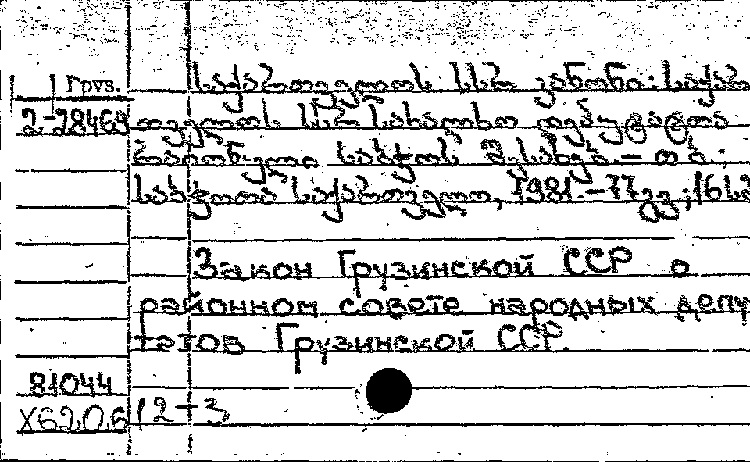 Груз. საქართველოს სსრ კანონი: საქარ
2-28469 თველოს სსრ სახალხო დეპუტატთა
რაიონული საბჭოს შესახებ. – თბ.:
საბჭოთა საქართველო, 1981. – 77 გვ.; 16სმ
Закон Грузинской ССР о
районном совете народных депу
татов Грузинской ССР.
81044
X620.6 12+3